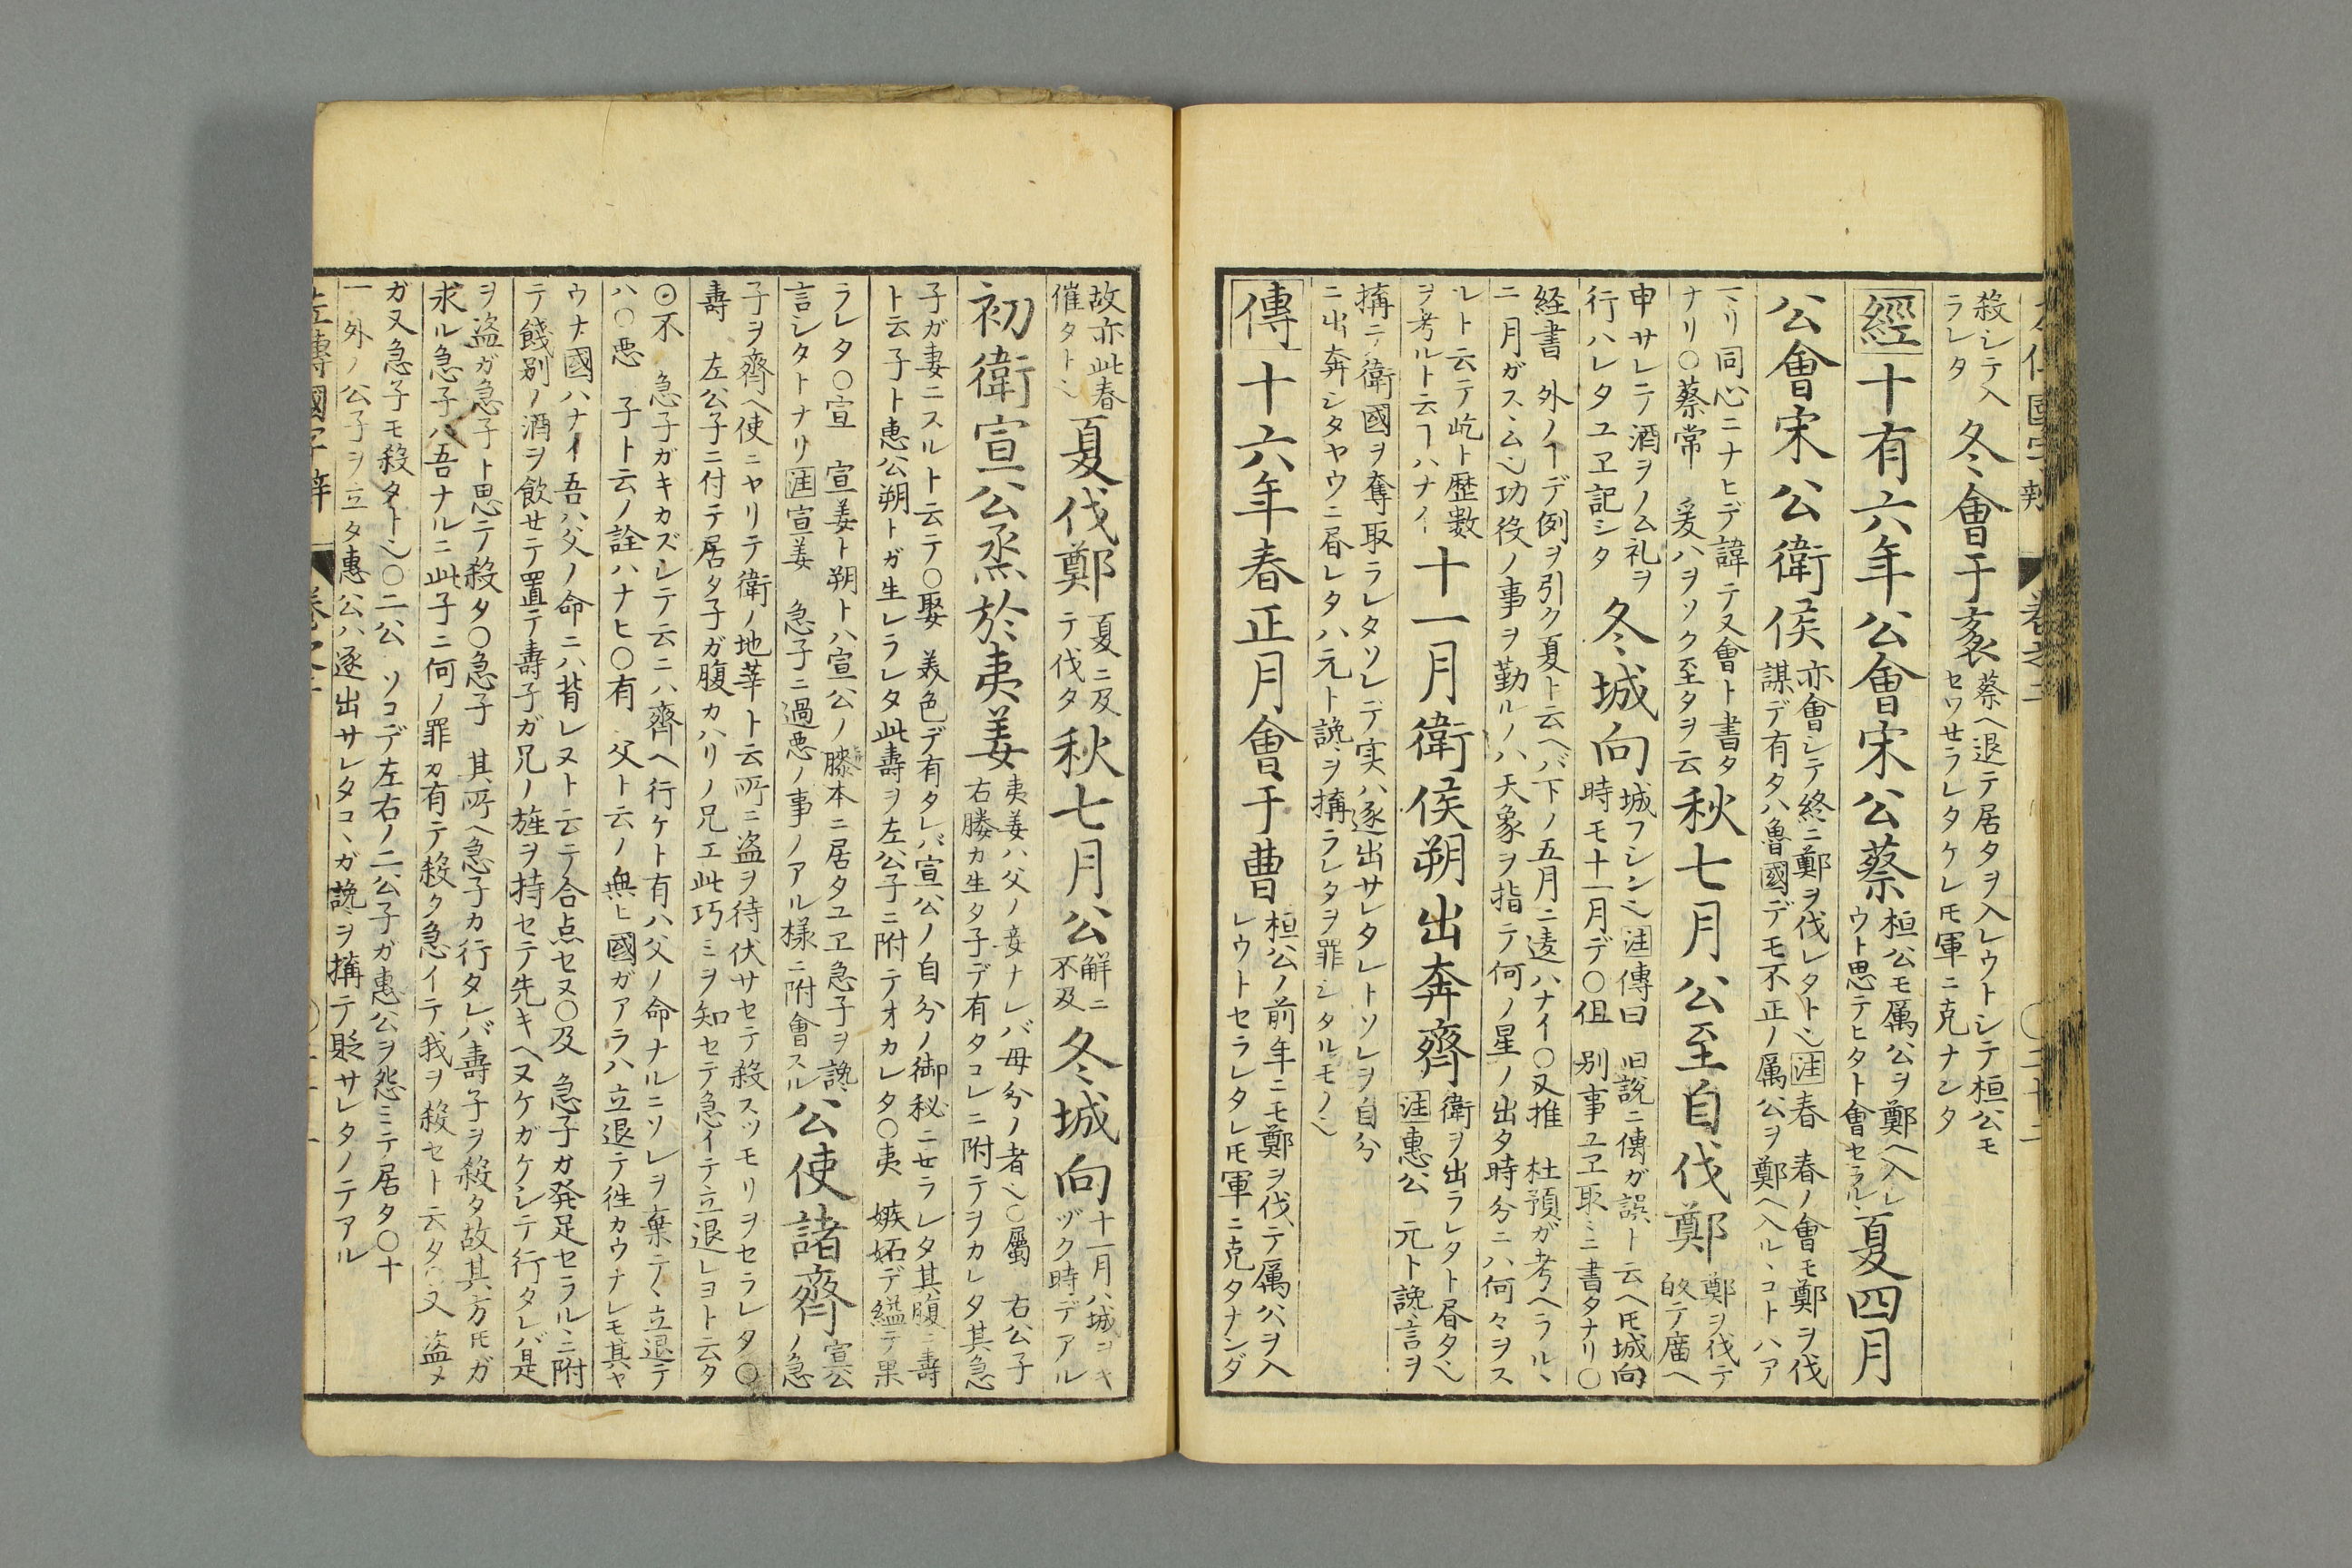 殺シテ入
ラレタ
冬會于袲
蔡ヘ退テ居タヲ入レウトシテ桓公モ
セワセラレタケレ𪜈軍ニ克ナンタ
經十有六年公會宋公蔡
桓公モ属公ヲ鄭ヘ入レ
ウト思テヒタト會セラル
夏四月
公會宋公衛侯
亦會シテ終ニ鄭ヲ伐レタト〆注春 春ノ會モ鄭ヲ伐
謀デ有タハ魯國デモ不正ノ属公ヲ鄭ヘ入ルヽコトハア
同心ニナヒデ諱テ又會ト書タ
ナリ〇蔡常 爰ハヲソク至タヲ云
秋七月公至自伐鄭
鄭ヲ伐テ
皈テ廟ヘ
申サレテ酒ヲノム礼ヲ
行ハレタユヱ記シタ
冬城向
城フシン〆注傳曰 旧説ニ傳ガ誤ト云ヘ𪜈城向
時モ十一月デ〇但 别事ユヱ取ミニ書タナリ〇
経書 外ノヿデ例ヲ引ク夏ト云ヘバ下ノ五月ニ遠ハナイ〇又推 杜預ガ考ヘラルヽ
二月ガスム〆功役ノ事ヲ勤ルノハ天象ヲ指テ何ノ星ノ出タ時分ニハ何々ヲス
レト云テ屹ト歴數
ヲ考ルト云ヿハナイ
十一月衛侯朔出奔齊
衛ヲ出ラレタト居タ〆
注惠公 元ト讒言ヲ
搆テ衛國ヲ奪取ラレタソレデ実ハ逐出サレタレトソレヲ自分
ニ出奔シタヤウニ居レタハ元ト讒ヲ搆ラレタヲ罪シタルモノ〆
傳十六年春正月會于曹
桓公ノ前年ニモ鄭ヲ伐テ属公ヲ入
レウトセラレタレ𪜈軍ニ克タナンダ
故亦此春
催タト〆
夏伐鄭
夏ニ及
テ伐タ
秋七月公
解ニ
不及
冬城向
十一月ハ城ヲキ
ヅク時デアル
初衛宣公烝於夷姜
夷姜ハ父ノ妾ナレバ母分ノ者〆〇屬 右公子
右媵カ生タ子デ有タコレニ附テヲカレタ其急
子ガ妻ニスルト云テ〇娶 美色デ有タレバ宣公ノ自分ノ御秘ニセラレタ其腹ニ壽
ト云子ト惠公朔トガ生レラレタ此壽ヲ左公子ニ附テオカレタ〇夷 嫉妬デ縊テ果
ラレタ〇宣 宣姜ト朔トハ宣公ノ膝本ニ居タユヱ急子ヲ讒
言シタトナリ注宣姜 急子ニ過悪ノ事ノアル様ニ附會スル
公使諸齊
宣公
ノ急
子ヲ齊ヘ使ニヤリテ衛ノ地莘ト云所ニ盗ヲ待伏サセテ殺スツモリヲセラレタ〇
壽 左公子ニ付テ居タ子ガ腹カハリノ兄エ此巧ミヲ知セテ急イテ立退レヨト云タ
⊙不 急子ガキカズシテ云ニハ齊ヘ行ケト有ハ父ノ命ナルニソレヲ棄テヽ立退テ
ハ〇悪 子ト云ノ詮ハナヒ〇有 父ト云ノ無ヒ國ガアラハ立退テ徃カウナレモ其ヤ
ウナ國ハナイ吾ハ父ノ命ニハ背レヌト云テ合点セヌ〇及 急子ガ発足セラルヽニ附
テ餞别ノ酒ヲ飲セテ置テ壽子ガ兄ノ旌ヲ持セテ先キヘヌケガケシテ行タレバ是
ヲ盗ガ急子ト思テ殺タ〇急子 其所ヘ急子カ行タレバ壽子ヲ殺タ故其方𪜈ガ
求ル急子ハ吾ナルニ此子ニ何ノ罪カ有テ殺ク急イテ我ヲ殺セト云タ〇又 盗メ
ガ又急子モ殺タト〆〇二公 ソコデ左右ノ二公子ガ惠公ヲ怨ミテ居タ〇十
一 外ノ公子ヲ立タ惠公ハ逐出サレタコヽガ讒ヲ搆テ貶サレタノテアル